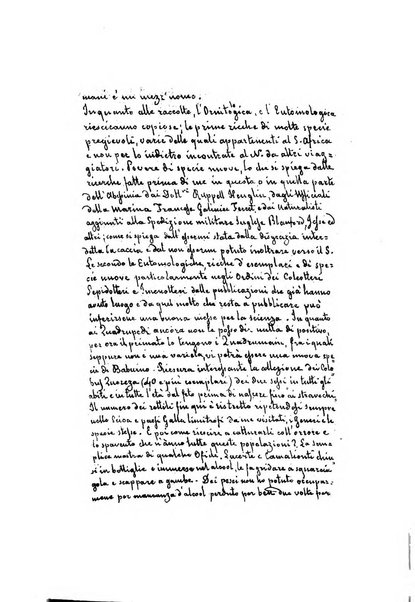 mani è un mezz'uomo.
In quanto alle raccolte, l'Ornitologica, e l'Entomologica
riescirono copiose; le prime ricche di molte specie
pregievoli, varie delle quali appartenenti al S. Africa
e non per lo indietro incontrate al N. da altri viag-
giatori. Povere di specie nuove, lo che si spiega dalle
ricerche fatte prima di me in questa o in quella parte
dell'Abissinia dai D.ri Ruppell Heuglin, dagli Ufficiali
della Marina Francese Galinier Ferret, e dai Naturalisti
aggiunti alla Spedizione militare Inglese Blanford, Jesse ed
altri; come si spiega dall'essermi stata dalla disgrazia inter-
detta la caccia, e dal non essermi potuto inoltrare verso il S.
Le seconde le Entomologiche, ricche d'esemplari e di spe-
cie nuove particolarmente negli Ordini dei Coleotteri
Lepidotteri e Imenotteri dalle pubblicazioni che già hanno
avuto luogo e da quel molto che resta a pubblicare può
inferirsene una buona messe per la scienza. In quanto
ai Quadrupedi ancora non le posso dir nulla di positivo,
per ora il primato lo tengono i Quadrumani, fra i quali
seppure non è una varietà, vi potrà essere una nuova spe
cie di Babuino. Riescirà interessante la collezione dei Colo
bus Guereza (40 e più esemplari) dei due sessi in tutti gli
abiti e in tutte l'età dal feto prima di nascere fino ai stravecchi.
Il numero dei rettili fin qui è ristretto ripetendosi sempre
nello Scioa e paesi Galla limitrofi da me visitati, i Generi e le
specie stesse. E poi come riuscire a catturarli coll'orrore e lo
spavento che ne hanno tutte queste popolazioni? La sem-
plice mostra di qualche Ofidi, Lucerte e Camaleonti chiu
si in bottiglie e immersi nel alcool, le fa gridare a squarcia
gola e scappare a gambe. Dei pesci non ho potuto occupar-
mene per mancanza d'alcool perduto per ben due volte per